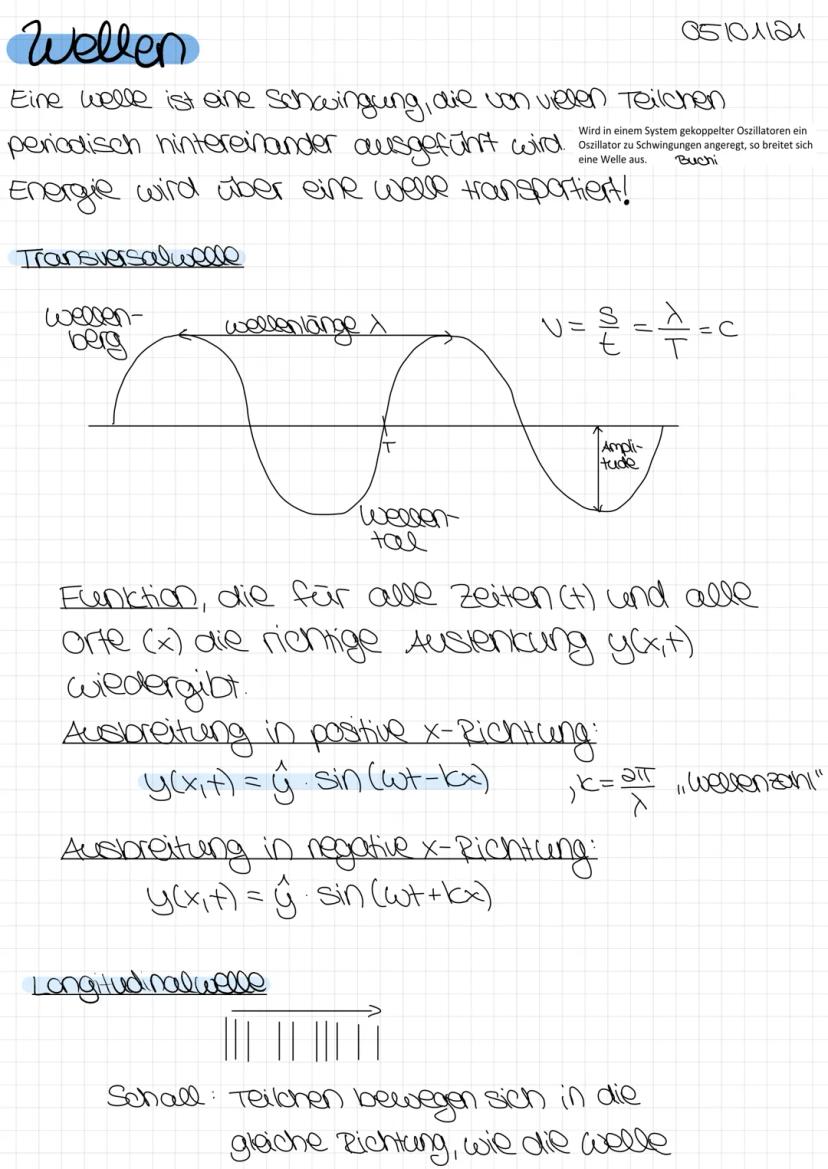 Wellen
05/01/21
Eine Welle ist eine Schwingung, die von vielen Teilchen
periodisch hintereinander ausgeführt wird.
Wird in einem System gekoppelter Oszillatoren ein
Oszillator zu Schwingungen angeregt, so breitet sich
eine Welle aus. Buchi
Energie wird über eine Welle transportiert!
Transversalwelle
Wellen-
berg
Wellenlänge λ
v = s/t = λ/T = c
T
Ampli-
tude
Wellen-
tal
Funktion, die für alle Zeiten (t) und alle
Orte (x) die richtige Auslenkung y(x,t)
wiedergibt.
Ausbreitung in positive x-Richtung:
y(x,t) = ŷ · sin (ωt-kx) , k = 2π/λ „Wellenzahl"
Ausbreitung in negative x-Richtung:
y(x,t) = ŷ · sin (ωt+kx)
Longitudinalwelle
Schall: Teilchen bewegen sich in die
gleiche Richtung, wie die Welle